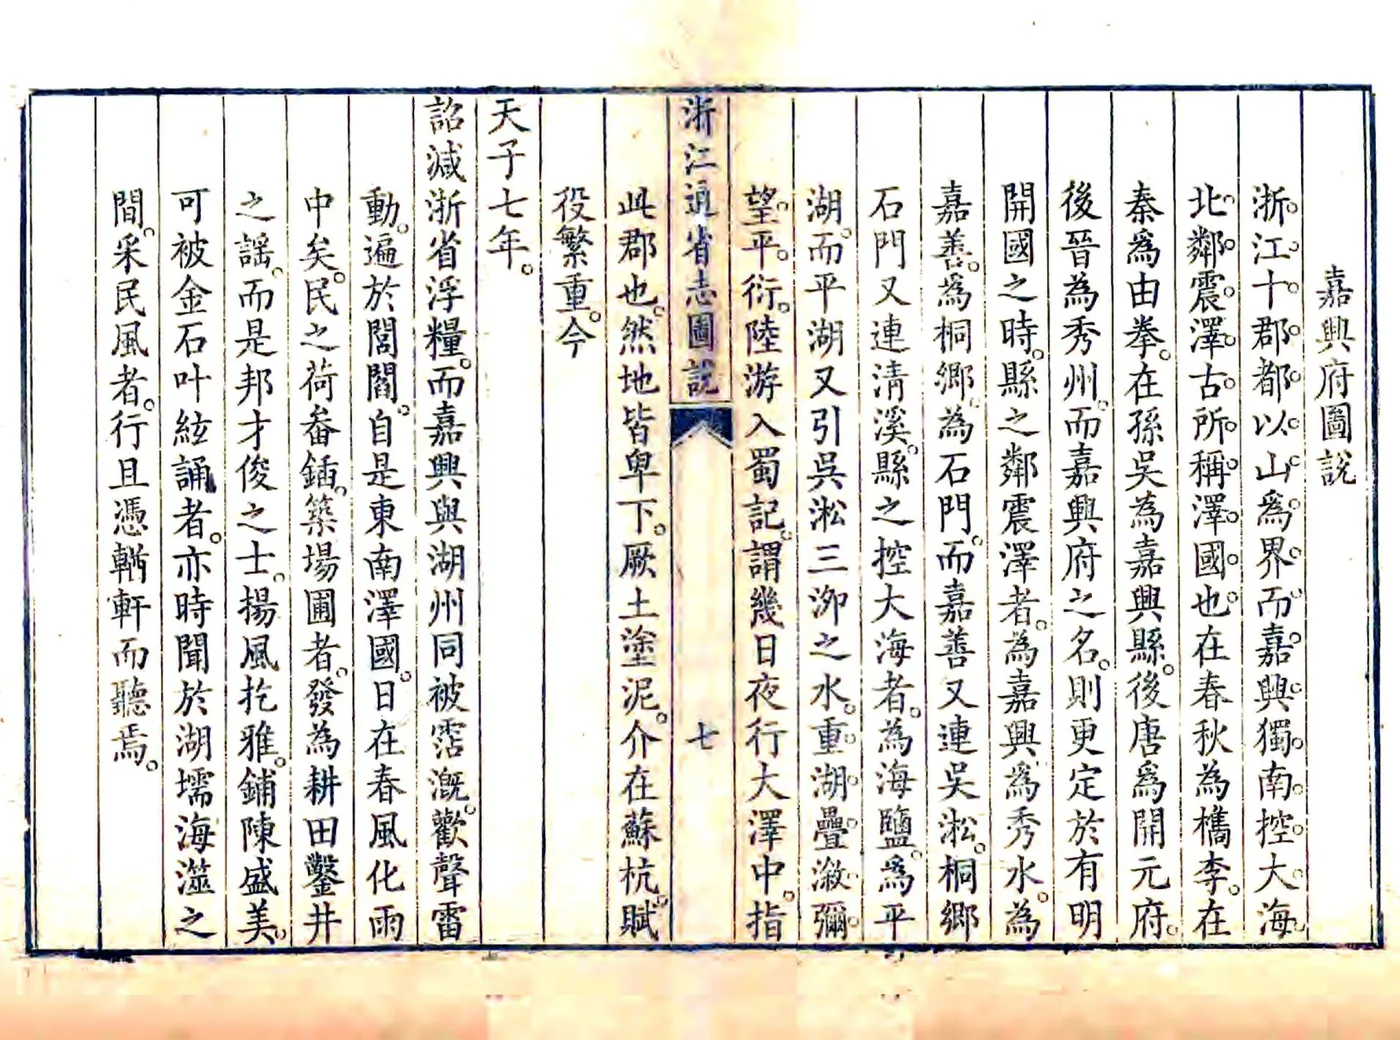 嘉興府圖說
浙江十郡都以山爲界而嘉興獨南控大海
北鄰震澤古所稱澤國也在春秋為檇李在
秦爲由拳在孫吳為嘉興縣後唐爲開元府
後晉為秀州而嘉興府之名則更定於有明
開國之時縣之鄰震澤者為嘉興爲秀水為
嘉善爲桐鄉為石門而嘉善又連吳淞桐鄉
石門又連淸溪縣之控大海者為海鹽爲平
湖而平湖又引吳淞三泖之水重湖疊漵彌
望平衍陸游入蜀記謂幾日夜行大澤中指
浙江通省志圖說
七
此郡也然地皆卑下厥土塗泥介在蘇杭賦
役繁重今
天子七年
詔減浙省浮糧而嘉興與湖州同被霑漑歡聲雷
動遍於閭閻自是東南澤國日在春風化雨
中矣民之荷畚鍤築場圃者發為耕田鑿井
之謡而是邦才俊之士揚風扢雅鋪陳盛美
可被金石叶絃誦者亦時聞於湖壖海澨之
間采民風者行且憑輶軒而聽焉